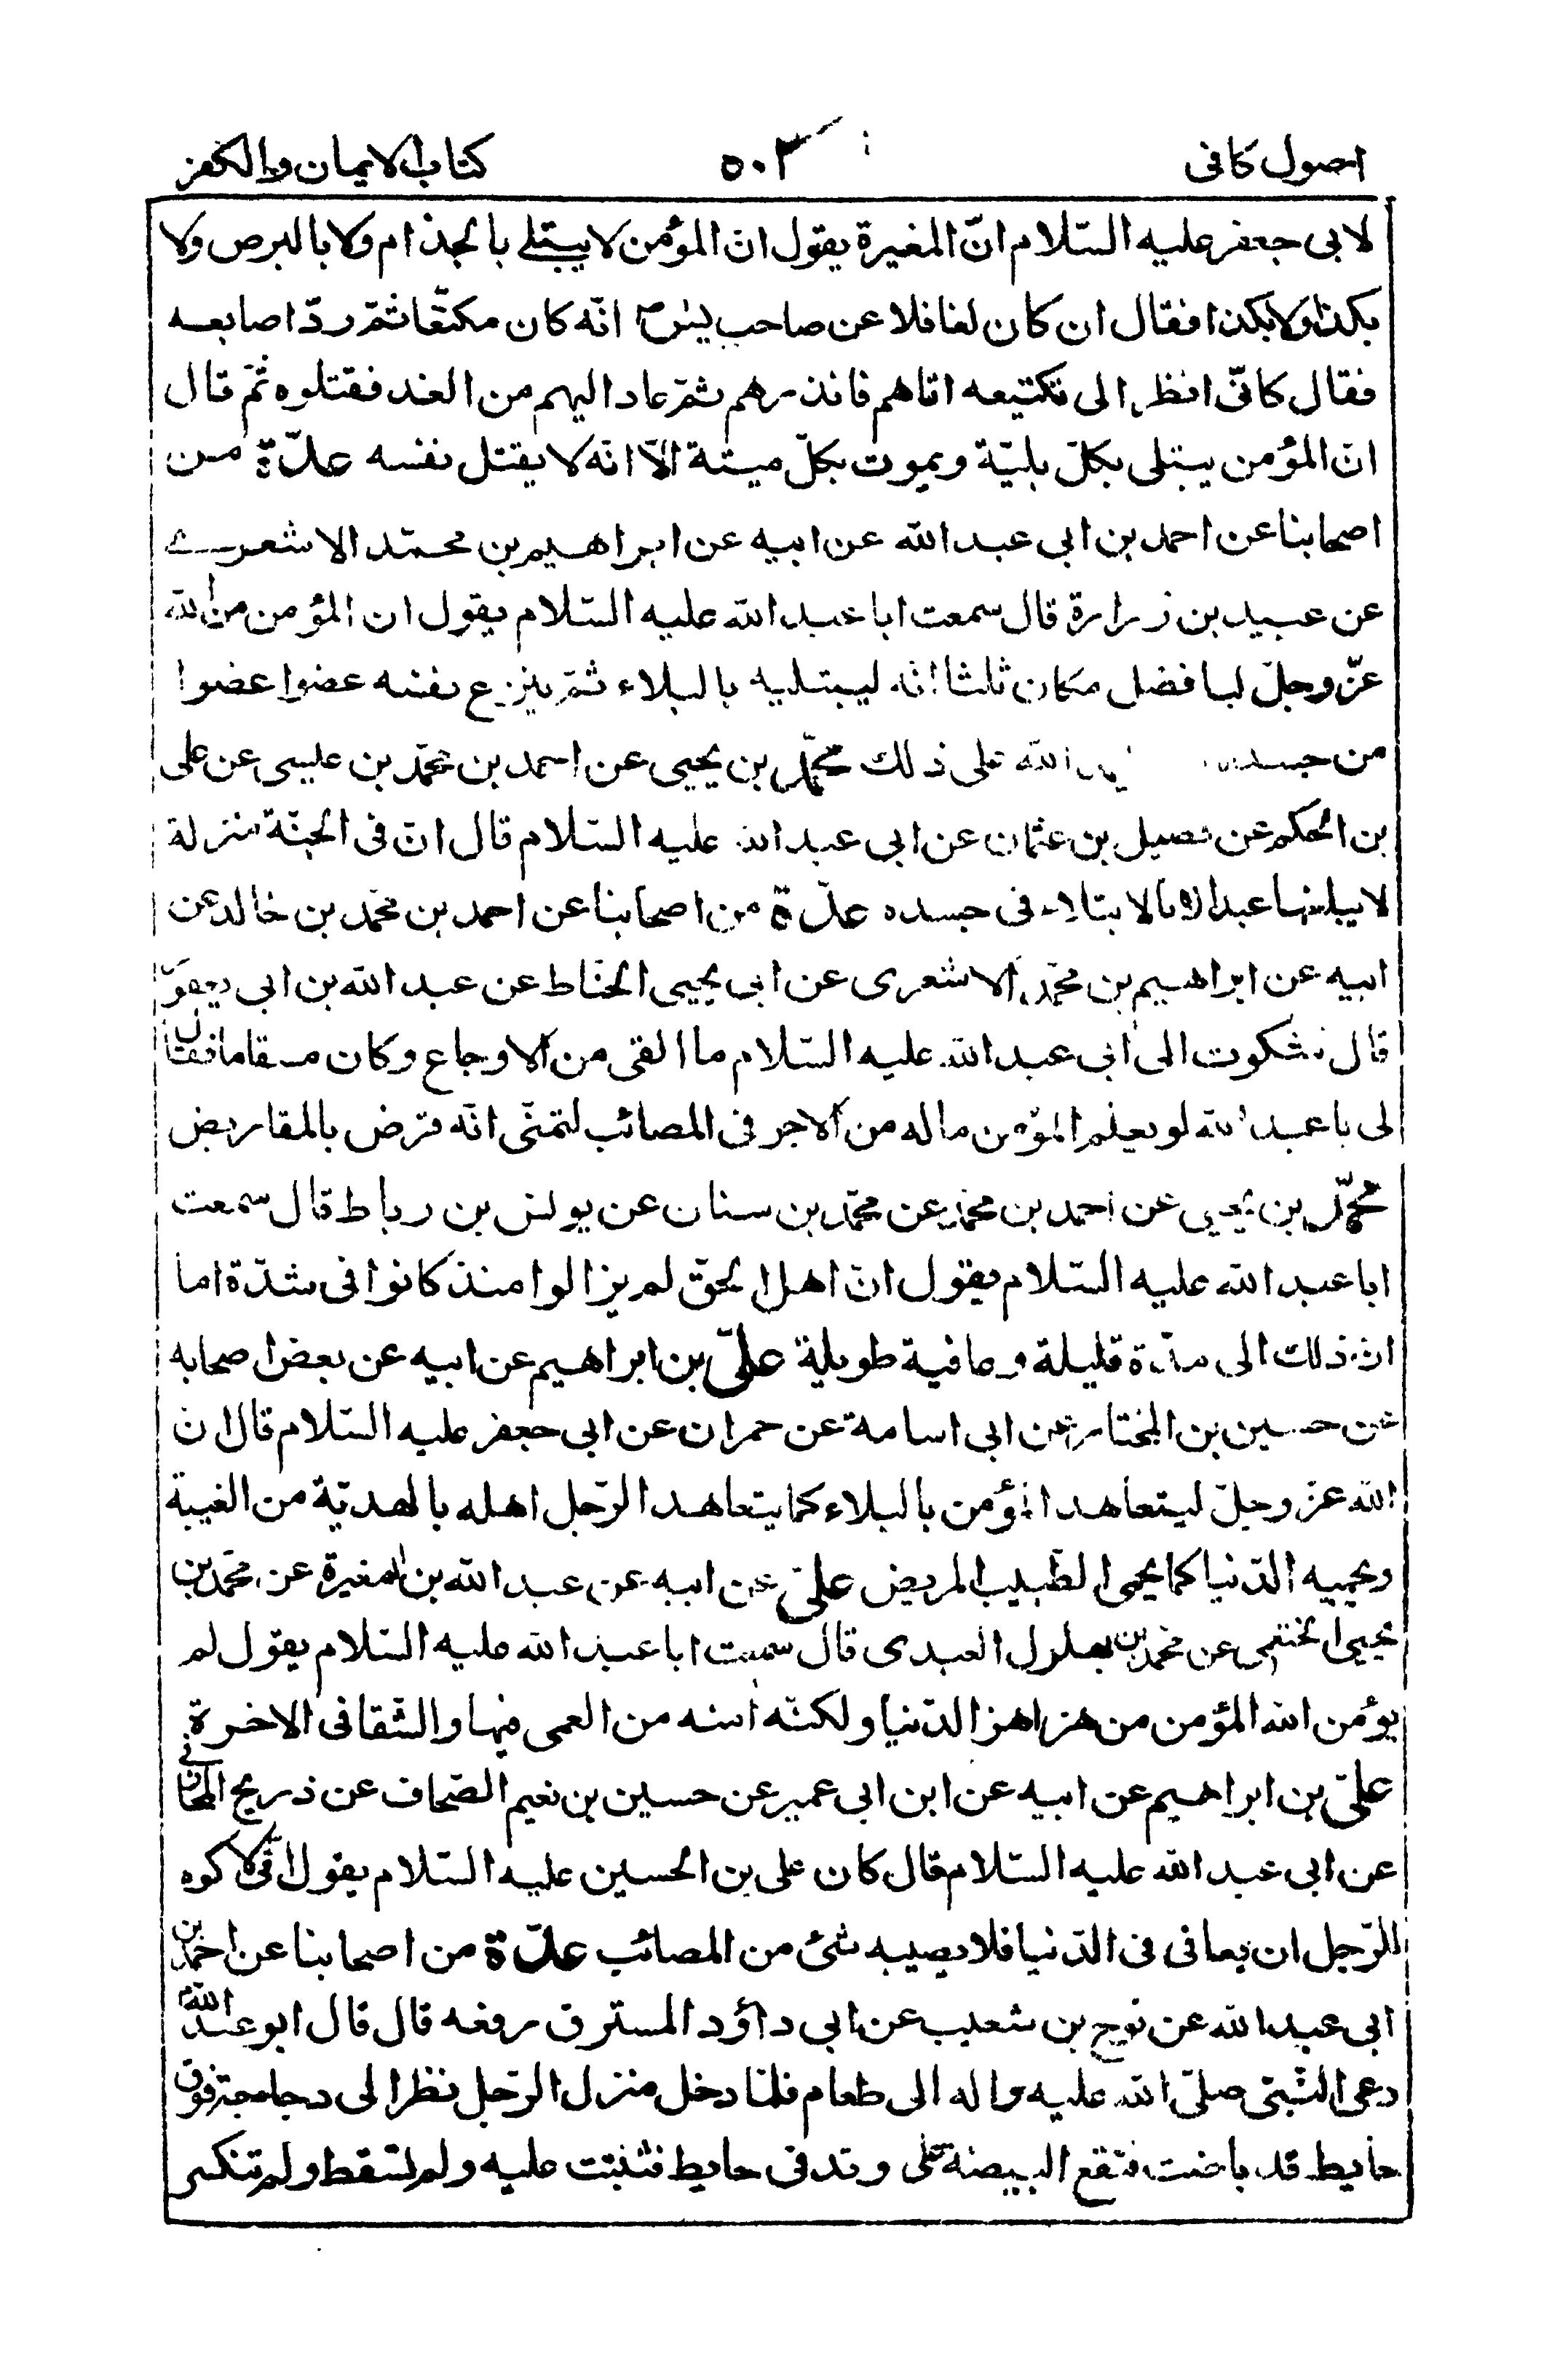 اصول کافی ٥٠٢ كتاب الايمان والكفر
لابى جعفر عليه السّلام انّ المغيرة يقول انّ المؤمن لا يبتلے بالجذام ولا بالبرص ولا
بكذا ولا بكذا فقال ان كان لغافلا عن صاحب يٰس انّه كان مكتّعا ثمّ ردّ اصابعه
فقال كانّى انظر الى تكتيعه اتاهم فانذرهم ثمّ عاد اليهم من الغد فقتلوه ثمّ قال
انّ المؤمن يبتلى بكلّ بليّة ويموت بكلّ ميتة الّا انّه لا يقتل نفسه عدّة من
اصحابنا عن احمد بن ابى عبد اللّه عن ابيه عن ابراهيم بن محمّد الاشعرے
عن عبيد بن زرارة قال سمعت ابا عبد اللّه عليه السّلام يقول ان المؤمن من اللّه
عزّ وجلّ لبافضل مكان ثلثا انّه ليبتليه بالبلاء ثمّ ينزع نفسه عضوا عضوا
من جسده اللّه على ذلك محمّد بن يحيى عن احمد بن محمّد بن عليسى عن على
بن الحكم عن فضيل بن عثمان عن ابى عبد اللّه عليه السّلام قال انّ فى الجنّة منزلة
لا يبلغها عبد الّا بالابتلاء فى جسده عدّة من اصحابنا عن احمد بن محمّد بن خالد عن
ابيه عن ابراهيم بن محمّد الاشعرى عن ابى يحيى الحنّاط عن عبد اللّه بن ابى يعفور
قال شكوت الى ابى عبد اللّه عليه السّلام ما القى من الاوجاع وكان مسقاما فقال
لى يا عبد اللّه لو يعلم المؤمن ماله من الاجر فى المصائب لتمنّى انّه قرض بالمقاريض
محمّد بن يحيى عن احمد بن محمّد عن محمّد بن سنان عن يونس بن رباط قال سمعت
ابا عبد اللّه عليه السّلام يقول انّ اهل الحقّ لم يزالوا منذ كانوا فى شدّة اما
انّ ذلك الى مدّة قليلة وعافية طويلة علىّ بن ابراهيم عن ابيه عن بعض اصحابه
عن حسين بن المختار عن ابى اسامة عن حمران عن ابى جعفر عليه السّلام قال ان
اللّه عزّ وجلّ ليتعاهد المؤمن بالبلاء كما يتعاهد الرّجل اهله بالهديّة من الغيبة
ويحميه الدّنيا كما يحمى الطّبيب المريض علىّ عن ابيه عن عبد اللّه بن المغيرة عن محمّد بن
يحيى الخثعمى عن محمّد بن بهلول العبدى قال سمعت ابا عبد اللّه عليه السّلام يقول لم
يؤمن اللّه المؤمن من هزاهز الدّنيا ولكنّه امنه من العمى فيها والشّقا فى الاخرة
علىّ بن ابراهيم عن ابيه عن ابن ابى عمير عن حسين بن نعيم الصّحاف عن ذريح المحاربى
عن ابى عبد اللّه عليه السّلام قال كان على بن الحسين عليه السّلام يقول انّى لاكره
للرّجل ان يعافى فى الدّنيا فلا يصيبه شئ من المصائب عدّة من اصحابنا عن احمد بن
ابى عبد اللّه عن نوح بن شعيب عن ابى داؤد المسترق رفعه قال قال ابو عبد اللّه
دعى النّبىّ صلّى اللّه عليه واله الى طعام فلمّا دخل منزل الرّجل نظر الى دجاجة فوق
حايط قد باضت فتقع البيضة على وتد فى حايط فثبتت عليه ولم تسقط ولم تنكسر